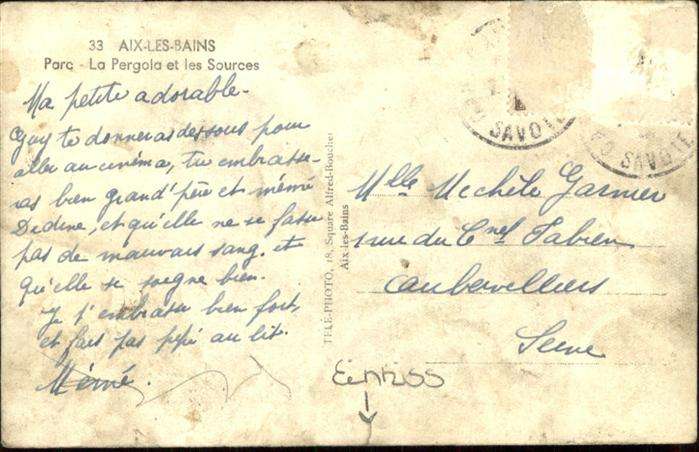 33 AIX-LES-BAINS
Parc - La Pergola et les Sources
Ma petite adorable -
Guy te donneras des sous pour
aller au cinéma, tu embrasse-
ras bien grand'père et mémé
Dedine, et qu'elle ne se fasse
pas de mauvais sang. et
qu'elle se soigne bien.
Je t'embrasse bien fort,
et fais pas pipi au lit.
Mémé.
TELE-PHOTO, 18, Square Alfred-Boucher
Aix-les-Bains
SAVOIE
SAVOIE
Mlle Michèle Garnier
1 rue du Cnel Fabien
Aubervilliers
Seine